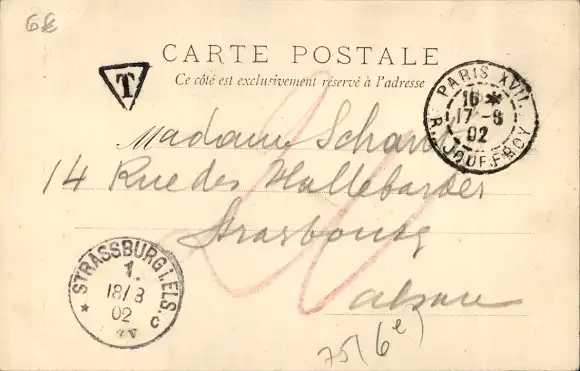 6€
CARTE POSTALE
T
Ce côté est exclusivement réservé à l'adresse
PARIS XVII.
16 *
17 - 8
02
R. JOUFFROY
Madame
14 Rue des Hallebardes
Strasbourg
Alsace
20
STRASSBURG I. ELS.
1.
18/8
02
* c
75 (6e)